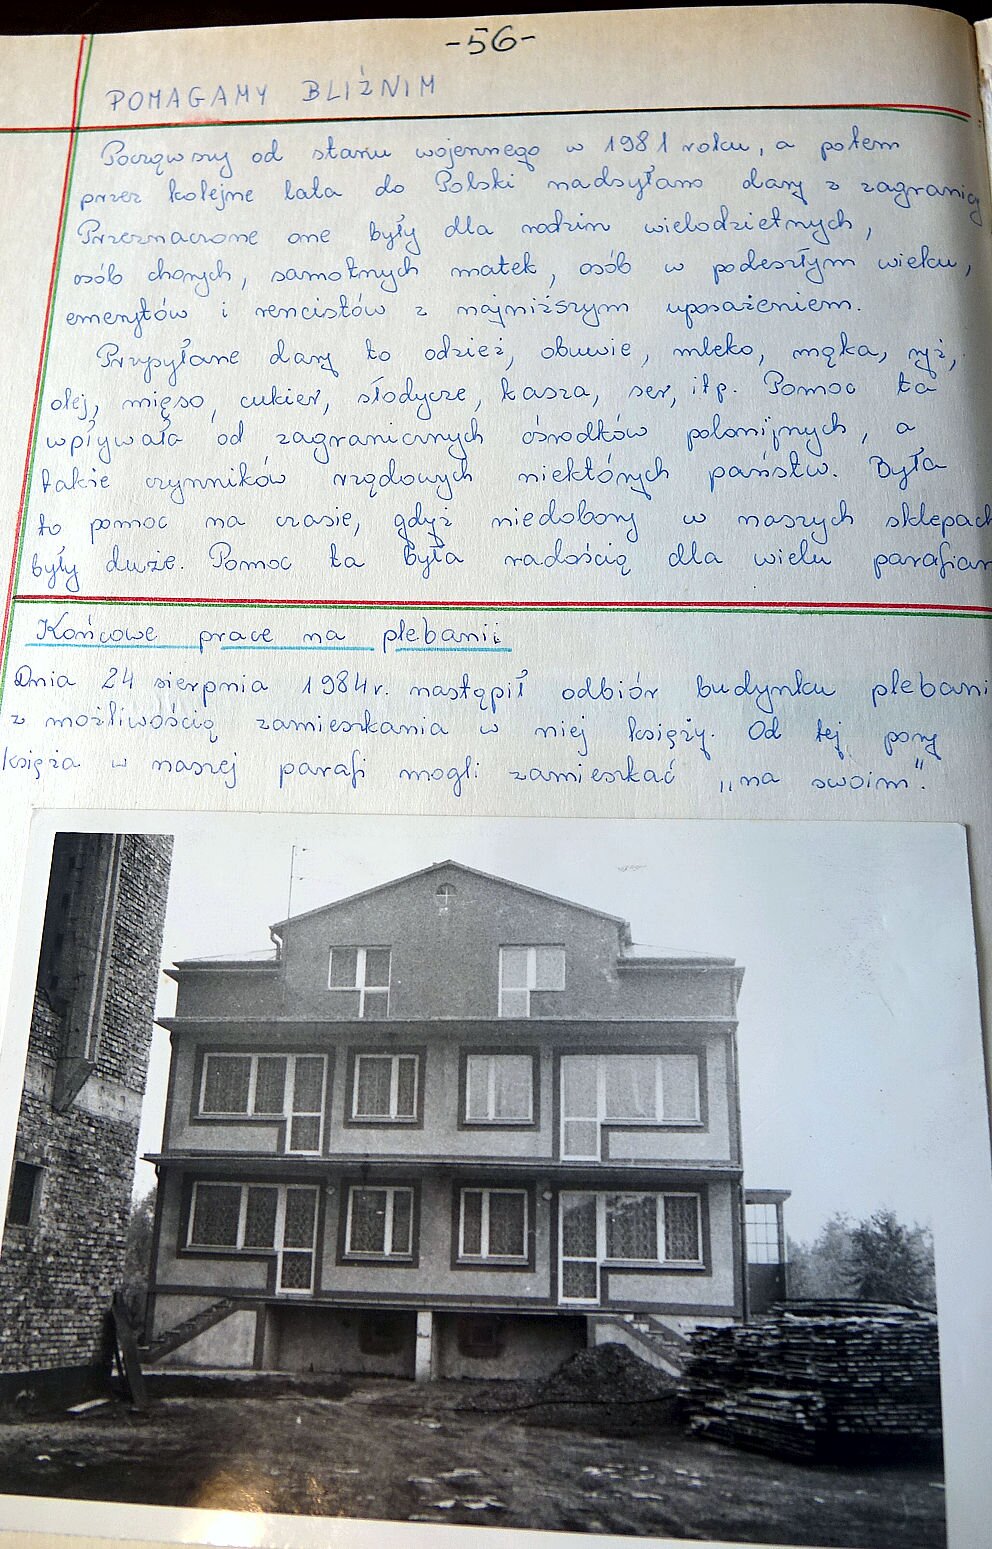 -56-
POMAGAMY BLIŹNIM
Począwszy od stanu wojennego w 1981 roku, a potem
przez kolejne lata do Polski nadsyłano dary z zagranicy
Przeznaczone one były dla rodzin wielodzietnych,
osób chorych, samotnych matek, osób w podeszłym wieku,
emerytów i rencistów z najniższym uposażeniem.
Przysyłane dary to odzież, obuwie, mleko, mąka, ryż,
olej, mięso, cukier, słodycze, kasza, ser, itp. Pomoc ta
wpływała od zagranicznych ośrodków polonijnych, a
także czynników rządowych niektórych państw. Była
to pomoc na czasie, gdyż niedobory w naszych sklepach
były duże. Pomoc ta była radością dla wielu parafian
Końcowe prace na plebanii
Dnia 24 sierpnia 1984r. nastąpił odbiór budynku plebani
z możliwością zamieszkania w niej księży. Od tej pory
księża w naszej parafi mogli zamieszkać „na swoim".